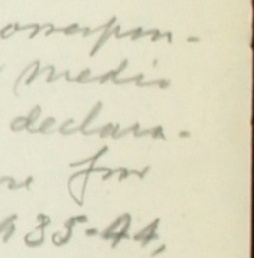 orrespon-
medio
declara-
re por
935-44,